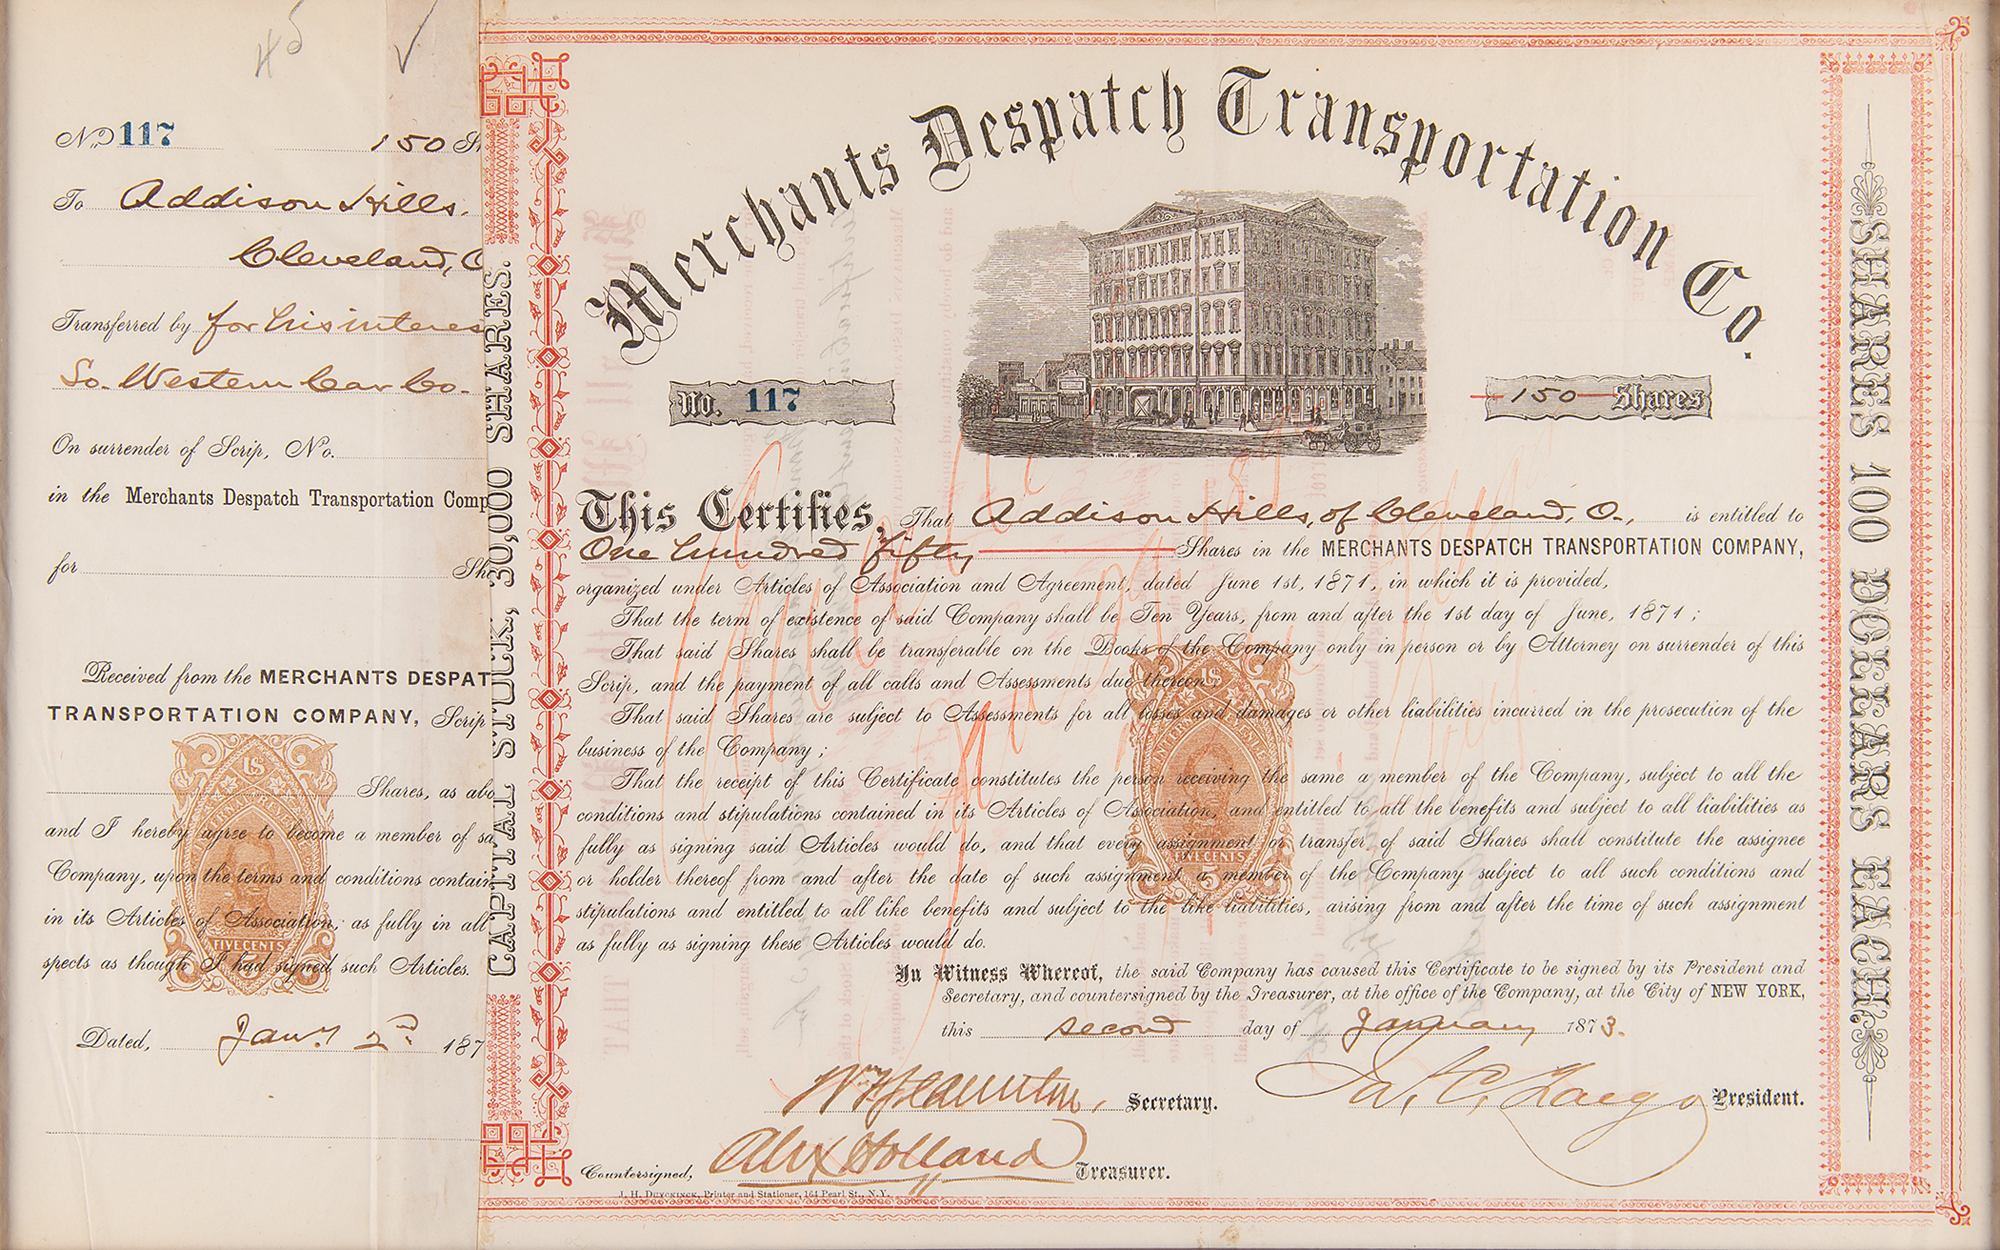 45
No. 117 150 Sh
To Addison Hills.
Cleveland, O
Transferred by for his interes
So. Western Car Co.
On surrender of Scrip, No.
in the Merchants Despatch Transportation Comp
for Sha
Received from the MERCHANTS DESPAT
TRANSPORTATION COMPANY, Scrip
Shares, as abo
and I hereby agree to become a member of sa
Company, upon the terms and conditions contain
in its Articles of Association, as fully in all
spects as though I had signed such Articles.
Dated, Jany. 2nd 187
US
INTERNAL REVENUE
FIVE CENTS
5
CAPITAL STOCK, 30,000 SHARES.
Merchants Despatch Transportation Co.
No. 117
150 Shares
This Certifies, That Addison Hills, of Cleveland, O., is entitled to
One hundred fifty Shares in the MERCHANTS DESPATCH TRANSPORTATION COMPANY,
organized under Articles of Association and Agreement, dated June 1st, 1871, in which it is provided,
That the term of existence of said Company shall be Ten Years, from and after the 1st day of June, 1871;
That said Shares shall be transferable on the Books of the Company only in person or by Attorney on surrender of this
Scrip, and the payment of all calls and Assessments due thereon;
That said Shares are subject to Assessments for all losses and damages or other liabilities incurred in the prosecution of the
business of the Company;
That the receipt of this Certificate constitutes the person receiving the same a member of the Company, subject to all the
conditions and stipulations contained in its Articles of Association, and entitled to all the benefits and subject to all liabilities as
fully as signing said Articles would do, and that every assignment or transfer of said Shares shall constitute the assignee
or holder thereof from and after the date of such assignment a member of the Company subject to all such conditions and
stipulations and entitled to all like benefits and subject to the like liabilities, arising from and after the time of such assignment
as fully as signing these Articles would do.
In Witness Whereof, the said Company has caused this Certificate to be signed by its President and
Secretary, and countersigned by the Treasurer, at the office of the Company, at the City of NEW YORK,
this second day of January 1873.
Secretary.
Jas. C. Fargo President.
Countersigned, Alex Holland Treasurer.
J. H. DUYCKINCK, Printer and Stationer, 164 Pearl St., N.Y.
US
INTERNAL REVENUE
FIVE CENTS
5
SHARES 100 DOLLARS EACH.